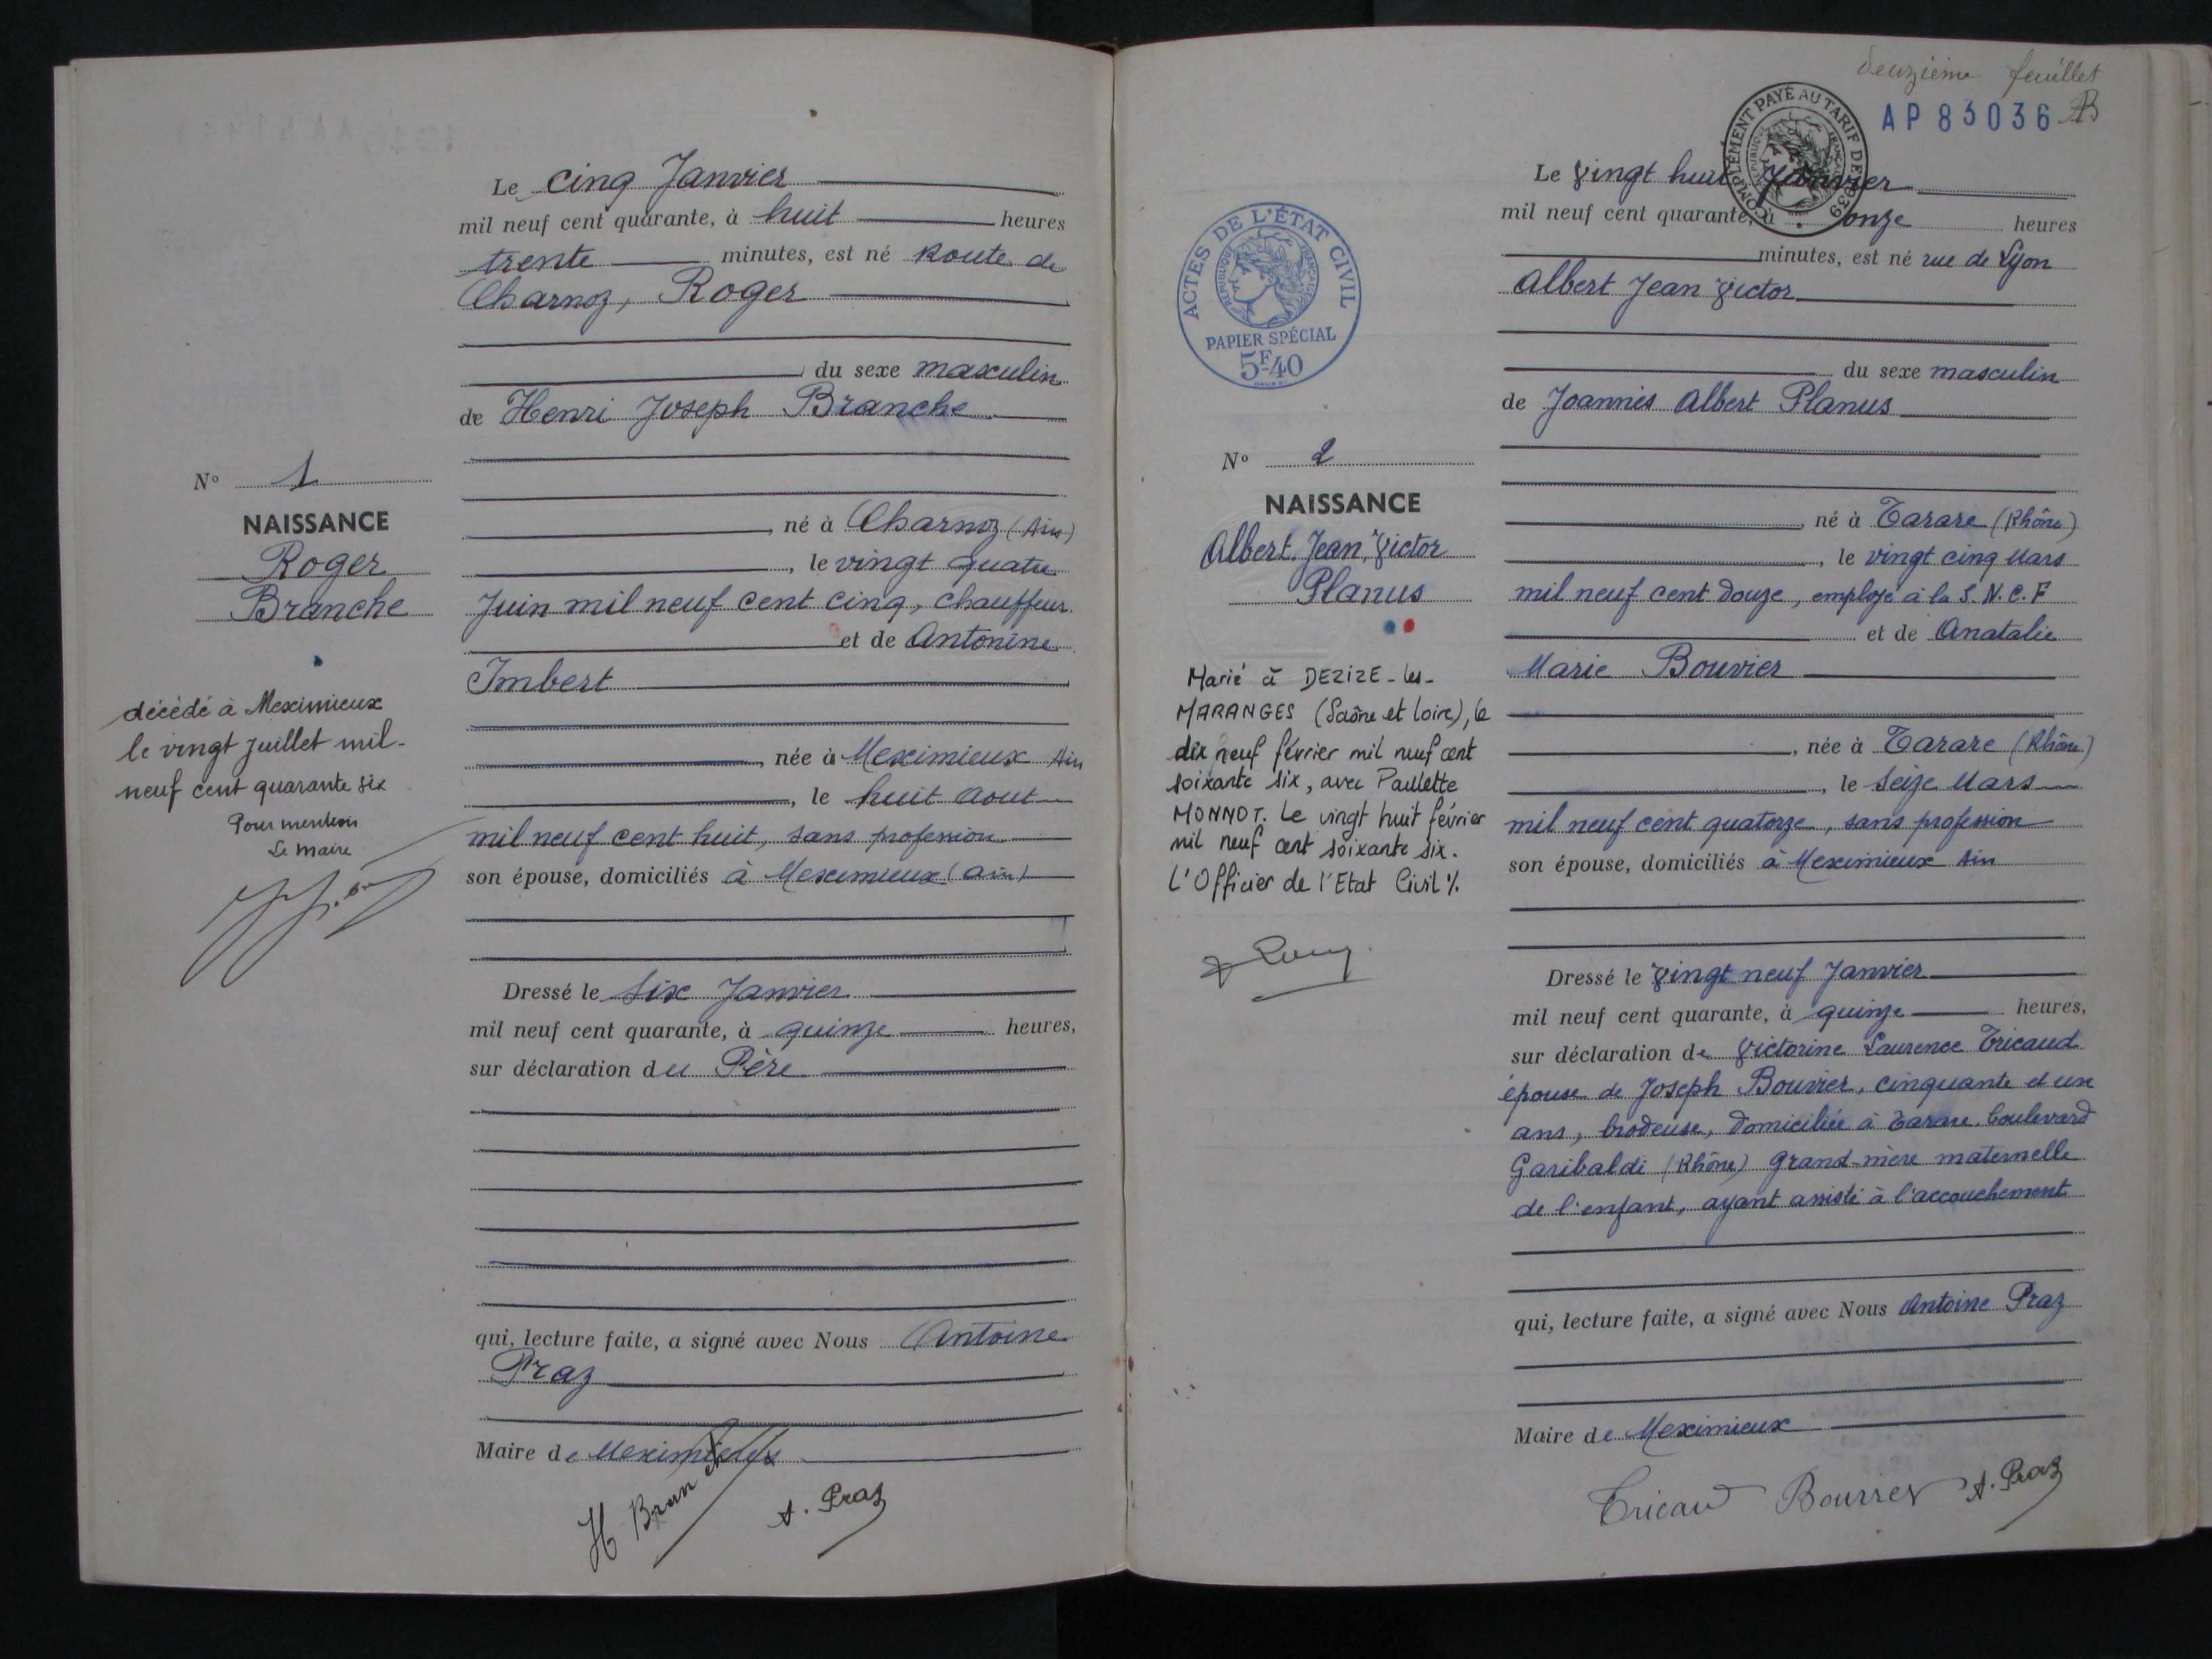 Le cinq Janvier
mil neuf cent quarante, à huit heures
trente minutes, est né Route de
Charnoz, Roger
du sexe masculin
de Henri Joseph Branche
N° 1
NAISSANCE
Roger
Branche
né à Charnoz (Ain)
, le vingt quatre
Juin mil neuf cent cinq, chauffeur
et de Antonine
Imbert
décédé à Meximieux
le vingt Juillet mil-
neuf cent quarante six
Pour mention
Le maire
, née à Meximieux Ain
, le huit Aout
mil neuf cent huit, sans profession
son épouse, domiciliés à Meximieux (Ain)
Dressé le six Janvier
mil neuf cent quarante, à quinze heures,
sur déclaration du Père
qui, lecture faite, a signé avec Nous Antoine
Praz
Maire de Meximieux
A. Praz
deuzième feuillet
AP 83036
COMPLÉMENT PAYÉ AU TARIF DE 1939
Le vingt huit Janvier
mil neuf cent quarante, à onze heures
minutes, est né rue de Lyon
Albert Jean Victor
ACTES DE L'ÉTAT CIVIL
RÉPUBLIQUE FRANÇAISE
PAPIER SPÉCIAL
5F40
du sexe masculin
de Joannès Albert Planus
N° 2
NAISSANCE
Albert, Jean, Victor
Planus
né à Tarare (Rhône)
, le vingt cinq Mars
mil neuf cent douze, employé à la S.N.C.F
et de Anatalie
Marie Bouvier
Marié à DEZIZE-les-
MARANGES (Saône et Loire), le
dix neuf février mil neuf cent
soixante six, avec Paulette
MONNOT. Le vingt huit février
mil neuf cent soixante six.
L'Officier de l'Etat Civil %.
, née à Tarare (Rhône)
, le seize Mars
mil neuf cent quatorze, sans profession
son épouse, domiciliés à Meximieux Ain
Dressé le vingt neuf Janvier
mil neuf cent quarante, à quinze heures,
sur déclaration de Victorine Laurence Tricaud
épouse de Joseph Bouvier, cinquante et un
ans, brodeuse, domiciliée à Tarare, boulevard
Garibaldi (Rhône) grand-mère maternelle
de l'enfant, ayant assisté à l'accouchement
qui, lecture faite, a signé avec Nous Antoine Praz
Maire de Meximieux
Tricaud Bouvier A. Praz